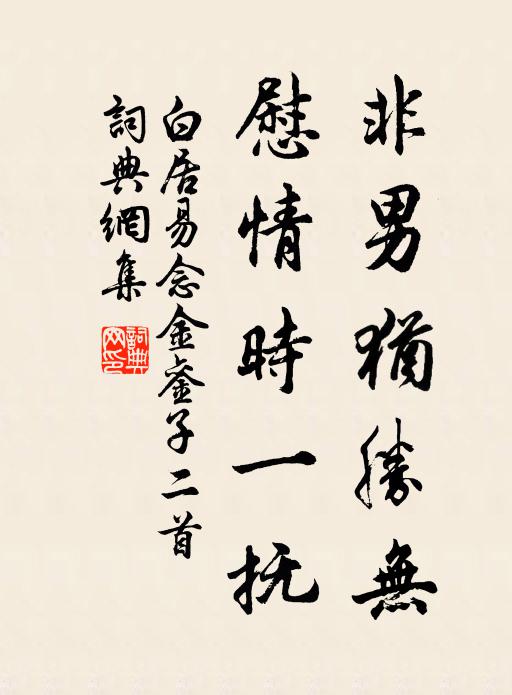 非男猶勝無
慰情時一抚
白居易念金銮子二首
詞典網集
詞典網印